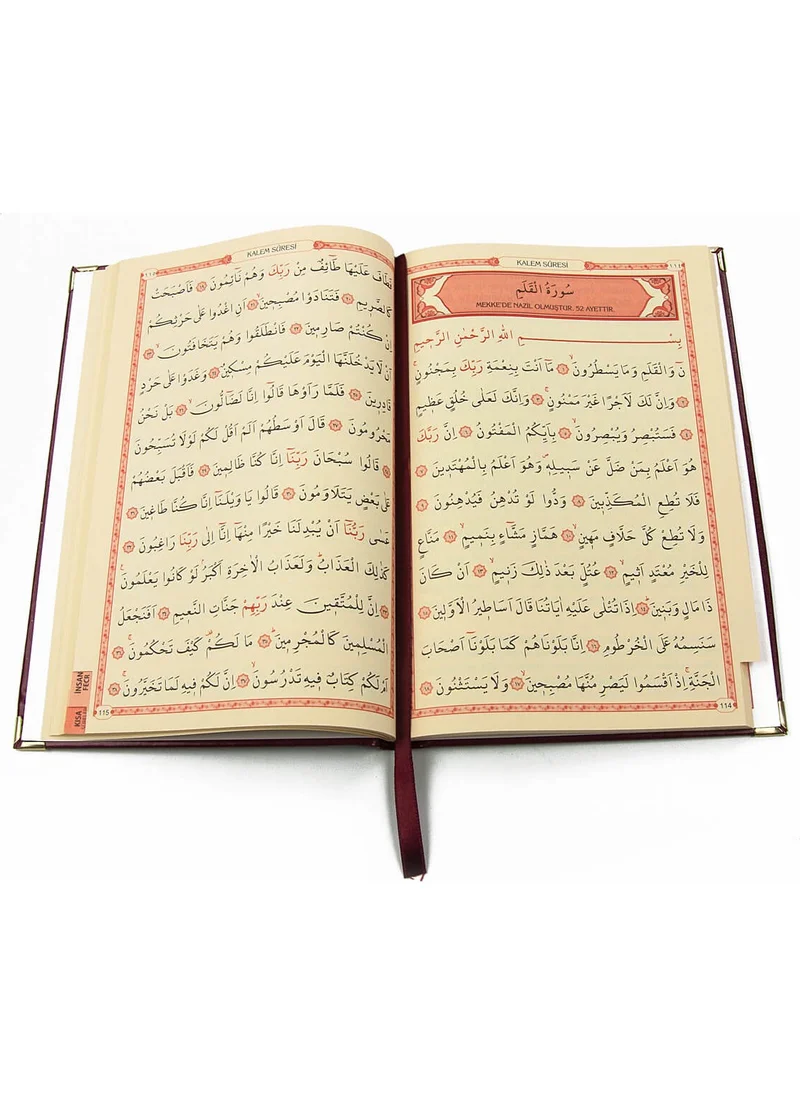 KALEM SÛRESİ
سُورَةُ الْقَلَمِ
MEKKE'DE NAZİL OLMUŞTUR. 52 AYETTİR.
بِسْمِ اللّٰهِ الرَّحْمٰنِ الرَّحٖيمِ
نٓ وَالْقَلَمِ وَمَا يَسْطُرُونَ ﴿١﴾ مَٓا اَنْتَ بِنِعْمَةِ رَبِّكَ بِمَجْنُونٍ
﴿٢﴾ وَاِنَّ لَكَ لَاَجْرًا غَيْرَ مَمْنُونٍ ﴿٣﴾ وَاِنَّكَ لَعَلٰى خُلُقٍ عَظٖيمٍ
﴿٤﴾ فَسَتُبْصِرُ وَيُبْصِرُونَ ﴿٥﴾ بِاَيِّكُمُ الْمَفْتُونُ ﴿٦﴾ اِنَّ رَبَّكَ
هُوَ اَعْلَمُ بِمَنْ ضَلَّ عَنْ سَبٖيلِهٖ وَهُوَ اَعْلَمُ بِالْمُهْتَدٖينَ ﴿٧﴾
فَلَا تُطِعِ الْمُكَذِّبٖينَ ﴿٨﴾ وَدُّوا لَوْ تُدْهِنُ فَيُدْهِنُونَ ﴿٩﴾
وَلَا تُطِعْ كُلَّ حَلَّافٍ مَهٖينٍ ﴿١٠﴾ هَمَّازٍ مَشَّٓاءٍ بِنَمٖيمٍ ﴿١١﴾ مَنَّاعٍ
لِلْخَيْرِ مُعْتَدٍ اَثٖيمٍ ﴿١٢﴾ عُتُلٍّ بَعْدَ ذٰلِكَ زَنٖيمٍ ﴿١٣﴾ اَنْ كَانَ
ذَا مَالٍ وَبَنٖينَ ﴿١٤﴾ اِذَا تُتْلٰى عَلَيْهِ اٰيَاتُنَا قَالَ اَسَاطٖيرُ الْاَوَّلٖينَ ﴿١٥﴾
سَنَسِمُهُ عَلَى الْخُرْطُومِ ﴿١٦﴾ اِنَّا بَلَوْنَاهُمْ كَمَا بَلَوْنَٓا اَصْحَابَ
الْجَنَّةِ اِذْ اَقْسَمُوا لَيَصْرِمُنَّهَا مُصْبِحٖينَ ﴿١٧﴾ وَلَا يَسْتَثْنُونَ ﴿١٨﴾
114
KALEM SÛRESİ
فَطَافَ عَلَيْهَا طَٓائِفٌ مِنْ رَبِّكَ وَهُمْ نَٓائِمُونَ ﴿١٩﴾ فَاَصْبَحَتْ
كَالصَّرٖيمِ ﴿٢٠﴾ فَتَنَادَوْا مُصْبِحٖينَ ﴿٢١﴾ اَنِ اغْدُوا عَلٰى حَرْثِكُمْ
اِنْ كُنْتُمْ صَارِمٖينَ ﴿٢٢﴾ فَانْطَلَقُوا وَهُمْ يَتَخَافَتُونَ ﴿٢٣﴾
اَنْ لَا يَدْخُلَنَّهَا الْيَوْمَ عَلَيْكُمْ مِسْكٖينٌ ﴿٢٤﴾ وَغَدَوْا عَلٰى حَرْدٍ
قَادِرٖينَ ﴿٢٥﴾ فَلَمَّا رَاَوْهَا قَالُٓوا اِنَّا لَضَٓالُّونَ ﴿٢٦﴾ بَلْ نَحْنُ
مَحْرُومُونَ ﴿٢٧﴾ قَالَ اَوْسَطُهُمْ اَلَمْ اَقُلْ لَكُمْ لَوْلَا تُسَبِّحُونَ
﴿٢٨﴾ قَالُوا سُبْحَانَ رَبِّنَٓا اِنَّا كُنَّا ظَالِمٖينَ ﴿٢٩﴾ فَاَقْبَلَ بَعْضُهُمْ
عَلٰى بَعْضٍ يَتَلَاوَمُونَ ﴿٣٠﴾ قَالُوا يَا وَيْلَنَٓا اِنَّا كُنَّا طَاغٖينَ ﴿٣١﴾
عَسٰى رَبُّنَٓا اَنْ يُبْدِلَنَا خَيْرًا مِنْهَٓا اِنَّٓا اِلٰى رَبِّنَا رَاغِبُونَ ﴿٣٢﴾
كَذٰلِكَ الْعَذَابُ وَلَعَذَابُ الْاٰخِرَةِ اَكْبَرُ لَوْ كَانُوا يَعْلَمُونَ
﴿٣٣﴾ اِنَّ لِلْمُتَّقٖينَ عِنْدَ رَبِّهِمْ جَنَّاتِ النَّعٖيمِ ﴿٣٤﴾ اَفَنَجْعَلُ
الْمُسْلِمٖينَ كَالْمُجْرِمٖينَ ﴿٣٥﴾ مَا لَكُمْ كَيْفَ تَحْكُمُونَ ﴿٣٦﴾
اَمْ لَكُمْ كِتَابٌ فٖيهِ تَدْرُسُونَ ﴿٣٧﴾ اِنَّ لَكُمْ فٖيهِ لَمَا تَخَيَّرُونَ ﴿٣٨﴾
115
İNSAN
FECR
KISA